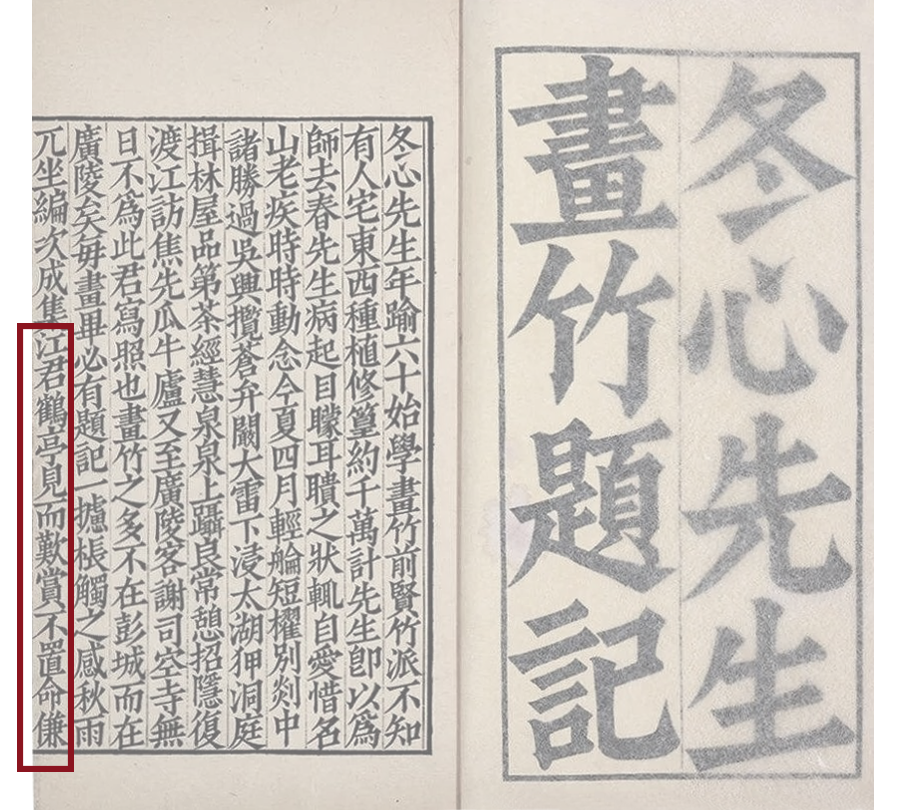 冬心先生
畫竹題記
冬心先生年踰六十始學畫竹前賢竹派不知
有人宅東西種植修篁約千萬計先生卽以爲
師去春先生病起目矇耳聵之狀輒自愛惜名
山老疾時時動念今夏四月輕艫短櫂別剡中
諸勝過吳興攬蒼弁闞大雷下浸太湖狎洞庭
揖林屋品第茶經慧泉泉上躡良常憩招隱復
渡江訪焦先瓜牛廬又至廣陵客謝司空寺無
日不爲此君寫照也畫竹之多不在彭城而在
廣陵矣每畫畢必有題記一攄棖觸之感秋雨
兀坐編次成集江君鶴亭見而歎賞不置命傔